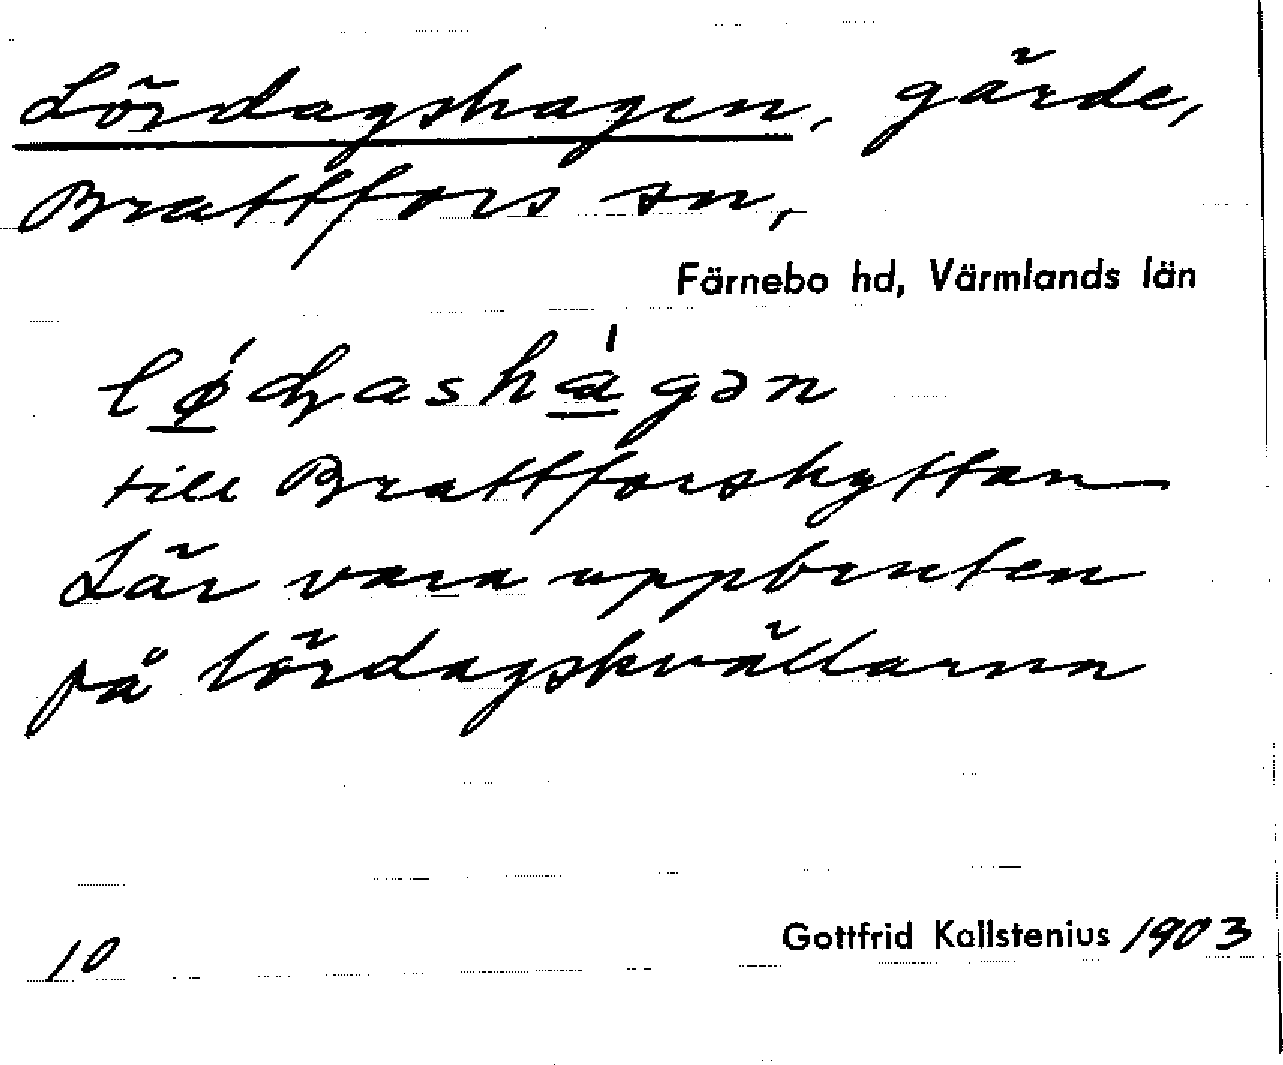 Lördagshagen, gärde,
Brattfors sn,
Färnebo hd, Värmlands län
till Brattforshyttan
Lär vara uppbruten
på lördagskvällarna
10
Gottfrid Kallstenius 1903